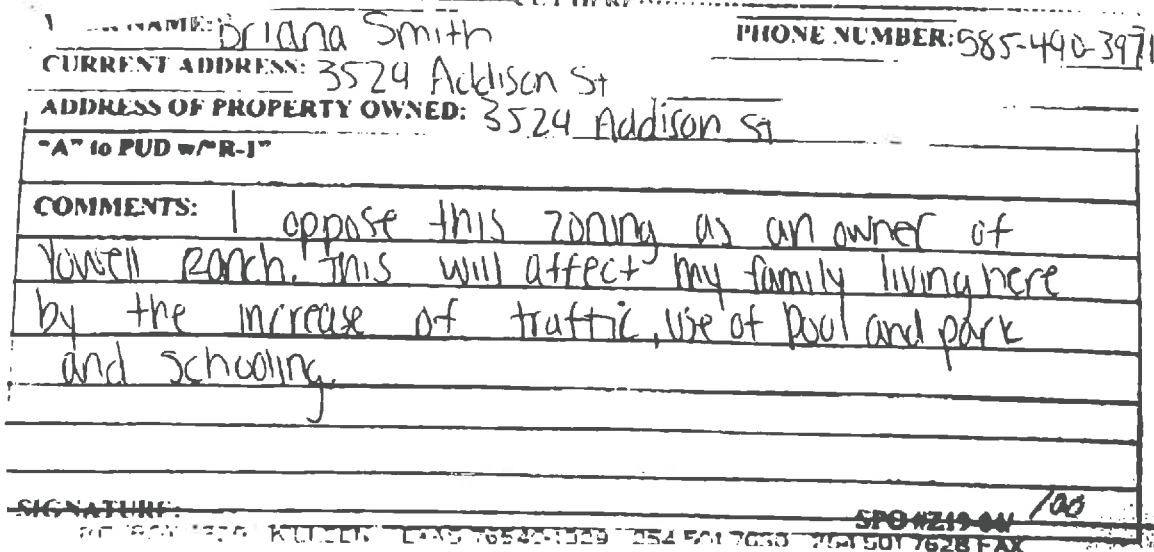 NAME: Briana Smith PHONE NUMBER: 585-490-3971
CURRENT ADDRESS: 3524 Addison St
ADDRESS OF PROPERTY OWNED: 3524 Addison St
"A" to PUD w/"R-1"
COMMENTS: I oppose this zoning as an owner of
Yowell Ranch. This will affect my family living here
by the increase of traffic, use of pool and park
and schooling.
SIGNATURE: SPO #Z19-04/ 100
KILLEEN 254 501 7630 254 501 7628 FAX